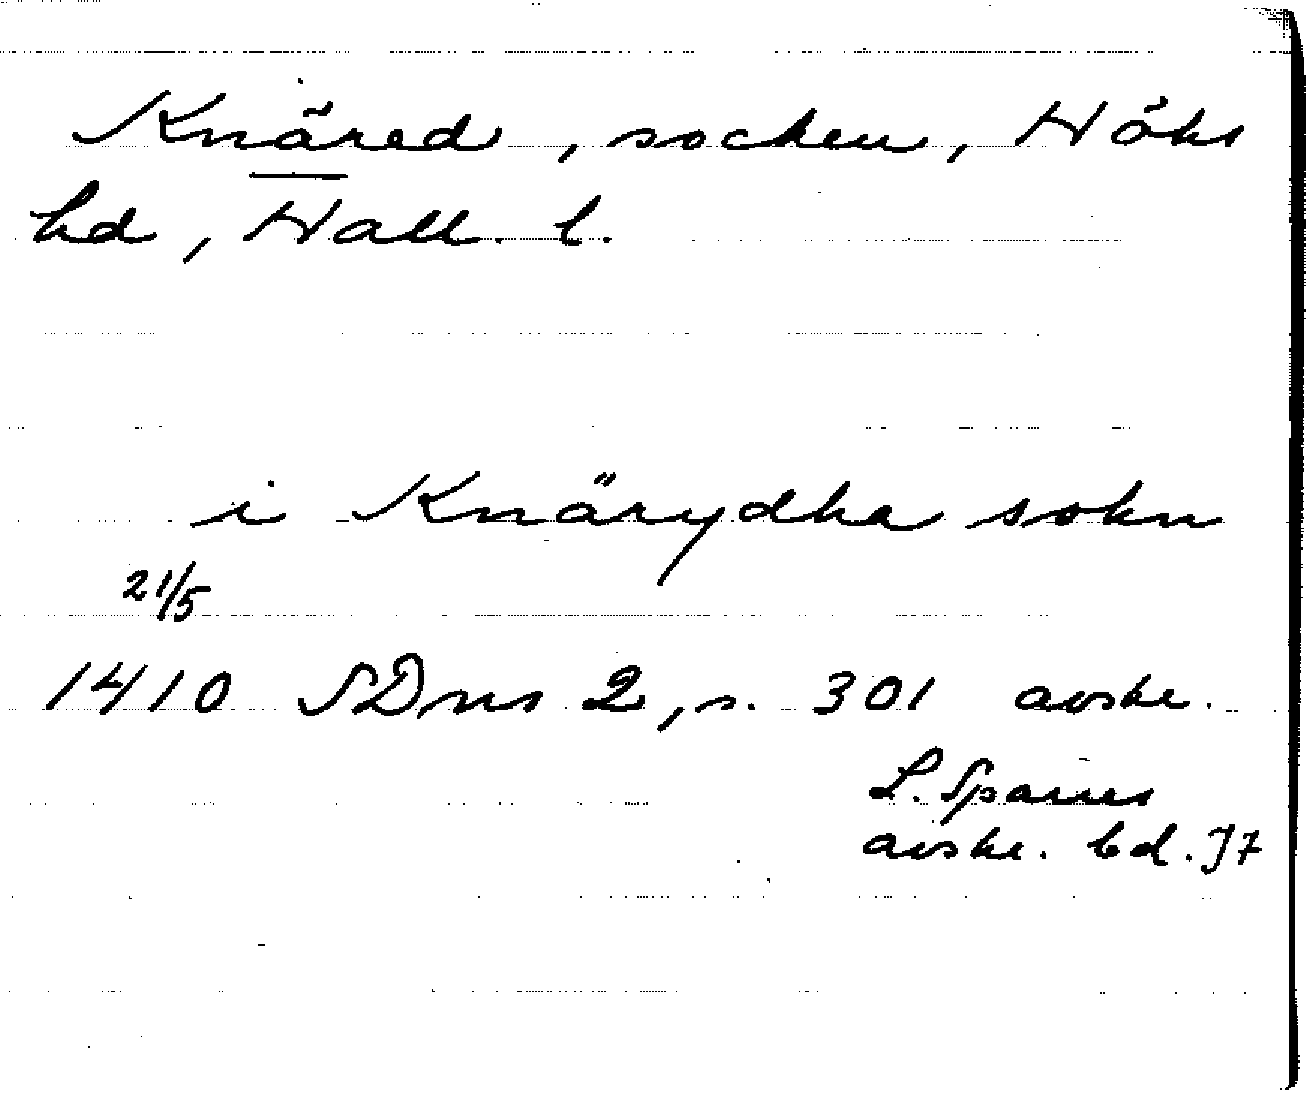 Knäred, socken, Höks
hd, Hall. l.
i Knärydha sokn
21/5
1410 SDns 2, s. 301 avskr.
L. Sparres
avskr. bd. I7